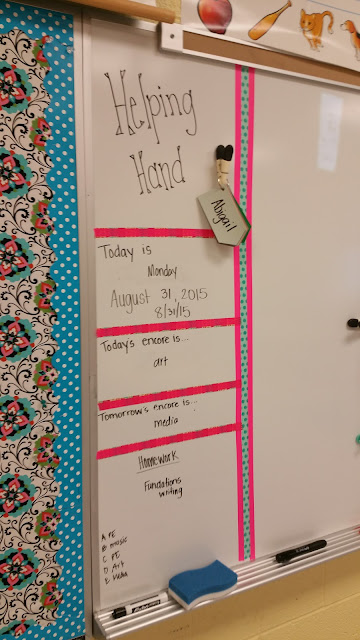 Helping
Hand
Abigail
Today is
Monday
August 31, 2015
8/31/15
Today's encore is...
art
Tomorrow's encore is...
media
Homework
Fundations
writing
A PE
B music
C PE
D Art
E Media